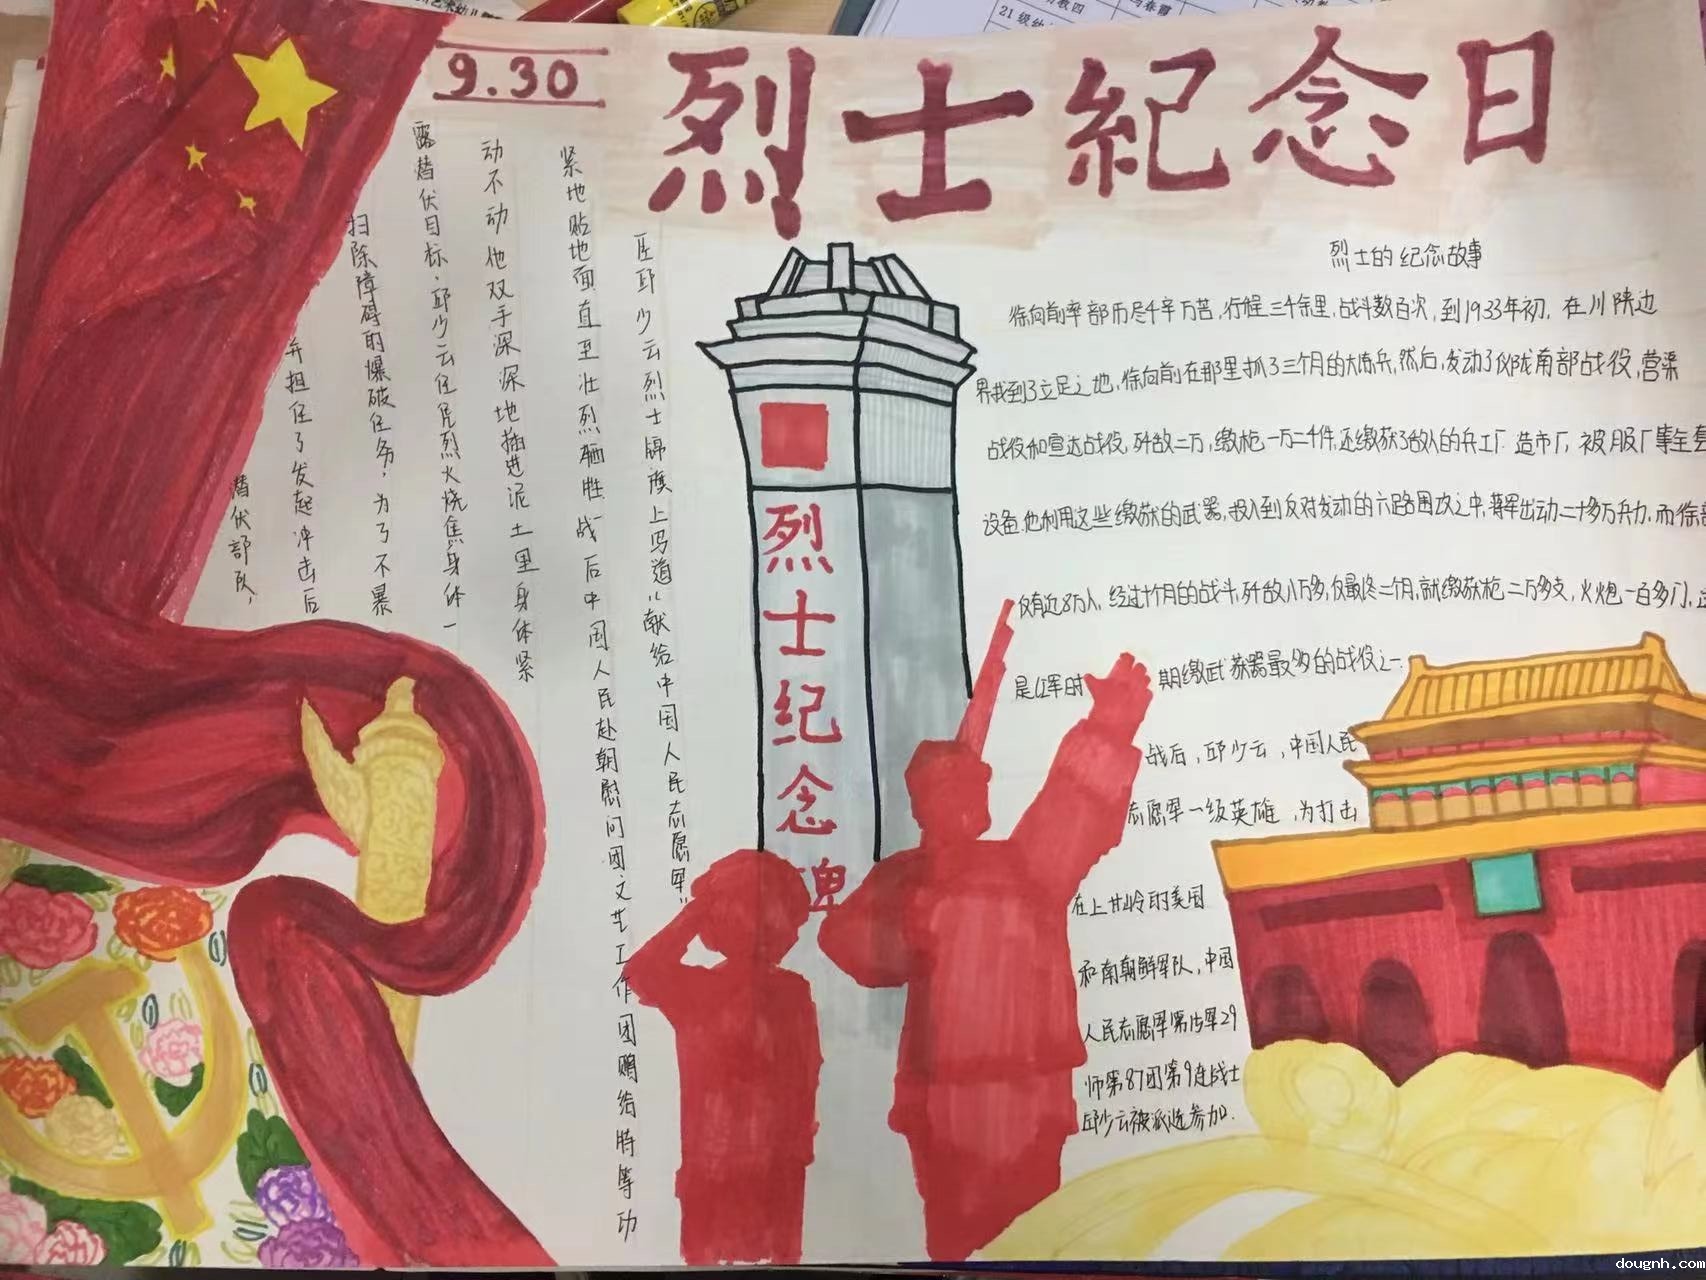 9.30
烈士紀念日
烈士的纪念故事
徐向前率部历尽千辛万苦，行程三千余里，战斗数百次，到1933年初，在川陕边
界找到了立足之地，徐向前在那里抓了三个月的大练兵，然后，发动了仪陇南部战役，营渠
战役和宣达战役，歼敌二万，缴枪一万二千件，还缴获了敌人的兵工厂造币厂，被服厂等全套
设备，他利用这些缴获的武器，投入到反对发动的六路围攻之中，蒋军出动二十多万兵力，而徐部
仅有近8万人，经过十个月的战斗，歼敌八万多，仅最终二个月，就缴获枪二万多支，火炮一百多门，这
是红军时期缴武获器最多的战役之一
战后，邱少云，中国人民
志愿军一级英雄，为打击
在上甘岭的美国
和南朝鲜军队，中国
人民志愿军第15军29
师第87团第9连战士
邱少云被派遣参加.
潜伏部队，
并担任了发起冲击后
扫除障碍的爆破任务，为了不暴
露替伏目标，邱少云任凭烈火烧焦身体一
动不动他双手深深地插进泥土里身体紧
紧地贴地面直至壮烈牺牲，战后中国人民赴朝慰问团文艺工作团赐给特等功
臣邱少云烈士锦旗上写道"献给中国人民志愿军"
烈士纪念碑
21级幼
dougnh.com